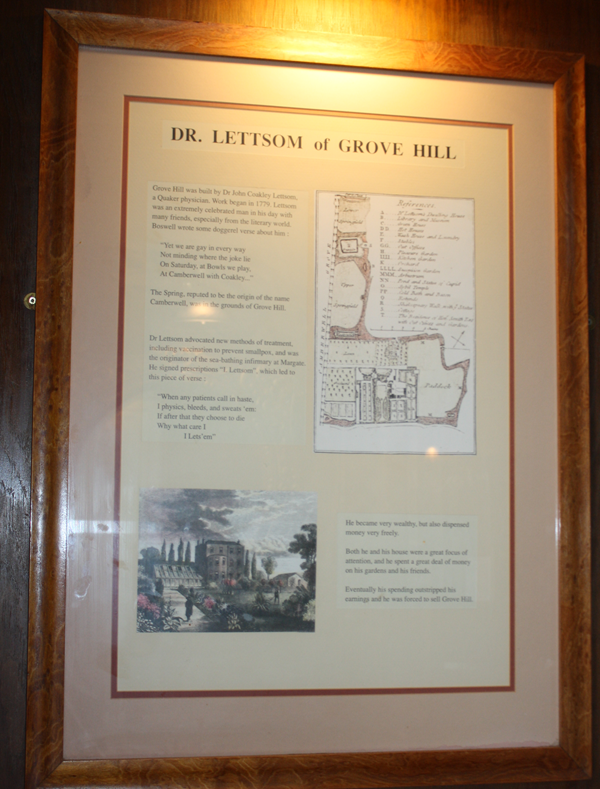 DR. LETTSOM of GROVE HILL
Grove Hill was built by Dr John Coakley Lettsom,
a Quaker physician. Work began in 1779. Lettsom
was an extremely celebrated man in his day with
many friends, especially from the literary world.
Boswell wrote some doggerel verse about him :
"Yet we are gay in every way
Not minding where the joke lie
On Saturday, at Bowls we play,
At Camberwell with Coakley..."
The Spring, reputed to be the origin of the name
Camberwell, was in the grounds of Grove Hill.
Dr Lettsom advocated new methods of treatment,
including vaccination to prevent smallpox, and was
the originator of the sea-bathing infirmary at Margate.
He signed prescriptions "I. Lettsom", which led to
this piece of verse :
"When any patients call in haste,
I physics, bleeds, and sweats 'em:
If after that they choose to die
Why what care I
I Lets'em"
References
Dwelling House
Library and Museum
Green House
Hot House
Wash House and Laundry
Stables
Flower Garden
Kitchen Garden
Orchard
Arboretum
Paddock
He became very wealthy, but also dispensed
money very freely.
Both he and his house were a great focus of
attention, and he spent a great deal of money
on his gardens and his friends.
Eventually his spending outstripped his
earnings and he was forced to sell Grove Hill.